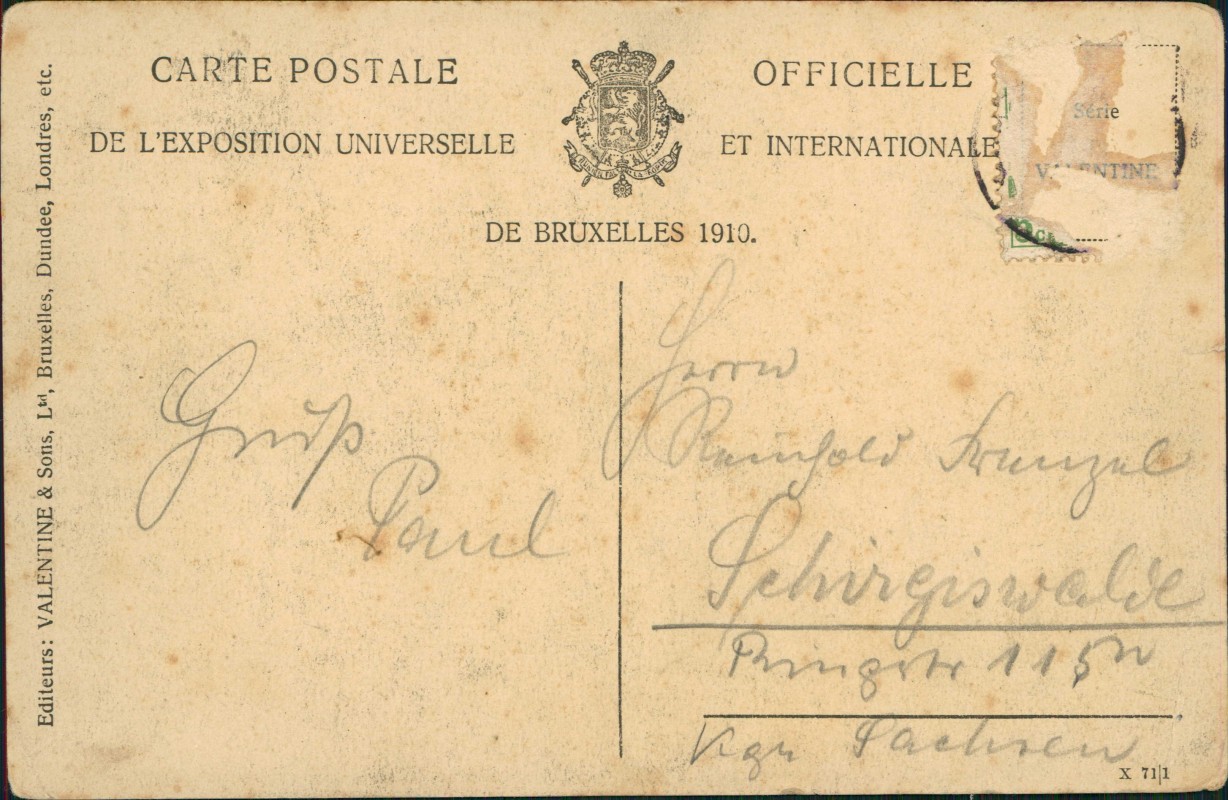 CARTE POSTALE OFFICIELLE
DE L'EXPOSITION UNIVERSELLE ET INTERNATIONALE
DE BRUXELLES 1910.
Série
VALENTINE
Editeurs: VALENTINE & Sons, Ltd, Bruxelles, Dundee, Londres, etc.
Gruß
Paul
Herrn
Reinhold Frenzel
Schirgiswalde
Ringstr 115
Kgr Sachsen
X 71|1